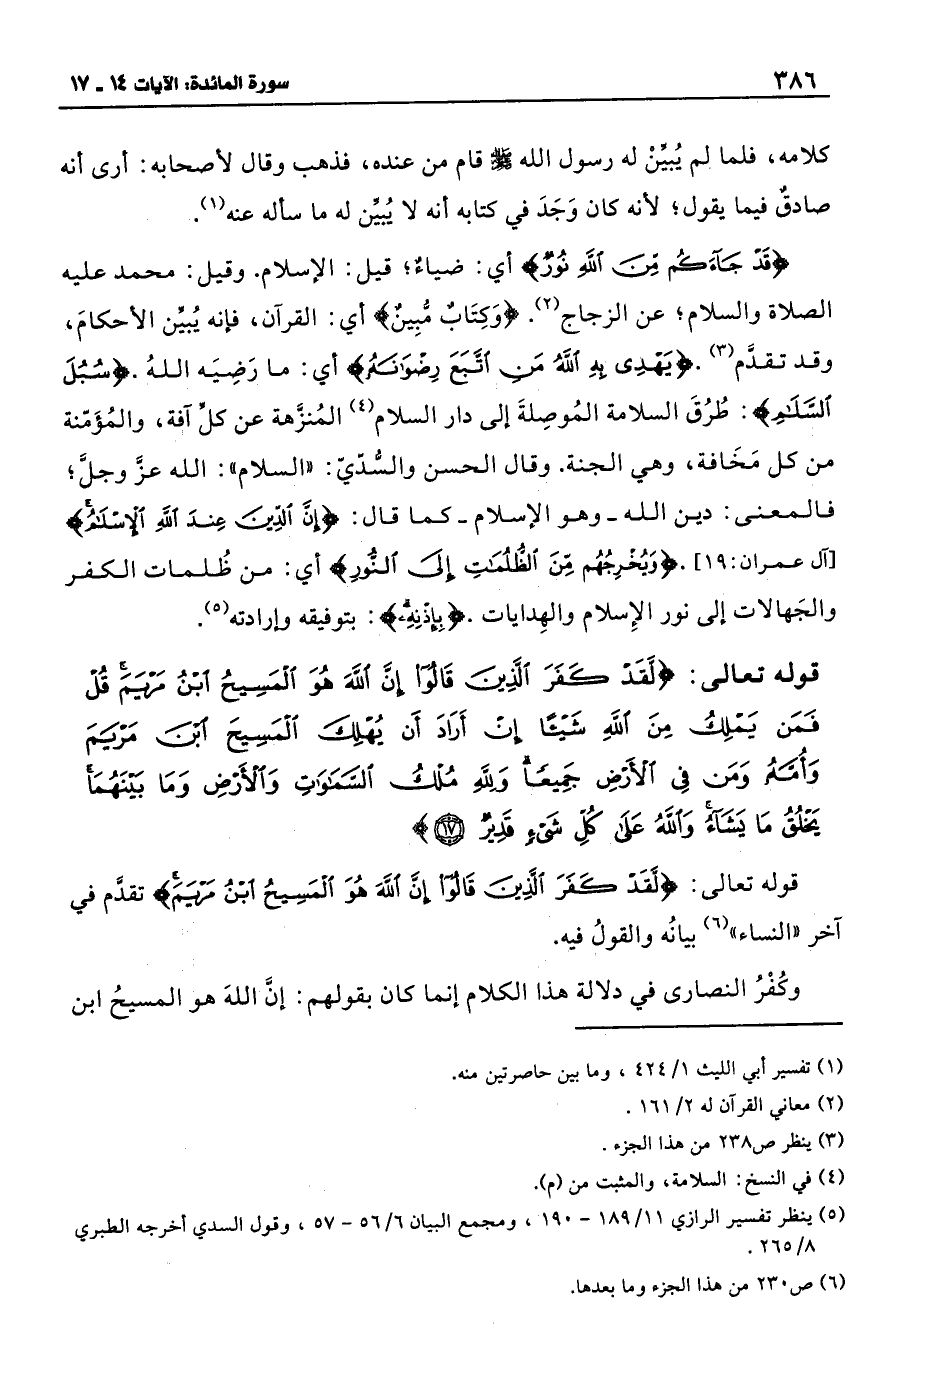 ٣٨٦
سورة المائدة: الآيات ١٤ ـ ١٧
كلامه، فلما لم يُبيِّنْ له رسول الله ﷺ قام من عنده، فذهب وقال لأصحابه: أرى أنه
صادقٌ فيما يقول؛ لأنه كان وَجَدَ في كتابه أنه لا يُبيِّن له ما سأله عنه(١).
﴿قَدْ جَآءَكُم مِّنَ ٱللَّهِ نُورٌ﴾ أي: ضياءٌ؛ قيل: الإسلام. وقيل: محمد عليه
الصلاة والسلام؛ عن الزجاج(٢). ﴿وَكِتَابٌ مُّبِينٌ﴾ أي: القرآن، فإنه يُبيِّن الأحكامَ،
وقد تقدَّم(٣). ﴿يَهْدِى بِهِ ٱللَّهُ مَنِ ٱتَّبَعَ رِضْوَٰنَهُۥ﴾ أي: ما رَضِيَه اللهُ. ﴿سُبُلَ
ٱلسَّلَٰمِ﴾: طُرُقَ السلامة المُوصِلةَ إلى دار السلام(٤) المُنزَّهة عن كلِّ آفة، والمُؤَمّنة
من كل مَخَافة، وهي الجنة. وقال الحسن والسُّدّيّ: «السلام»: الله عزَّ وجلَّ؛
فالمعنى: دين الله ـ وهو الإسلام ـ كما قال: ﴿إِنَّ ٱلدِّينَ عِندَ ٱللَّهِ ٱلْإِسْلَٰمُ﴾
[آل عمران: ١٩]. ﴿وَيُخْرِجُهُم مِّنَ ٱلظُّلُمَٰتِ إِلَى ٱلنُّورِ﴾ أي: من ظُلمات الكفر
والجَهالات إلى نور الإسلام والهِدايات. ﴿بِإِذْنِهِۦ﴾: بتوفيقه وإرادته(٥).
قوله تعالى: ﴿لَّقَدْ كَفَرَ ٱلَّذِينَ قَالُوٓا۟ إِنَّ ٱللَّهَ هُوَ ٱلْمَسِيحُ ٱبْنُ مَرْيَمَ ۚ قُلْ
فَمَن يَمْلِكُ مِنَ ٱللَّهِ شَيْـًٔا إِنْ أَرَادَ أَن يُهْلِكَ ٱلْمَسِيحَ ٱبْنَ مَرْيَمَ
وَأُمَّهُۥ وَمَن فِى ٱلْأَرْضِ جَمِيعًا ۗ وَلِلَّهِ مُلْكُ ٱلسَّمَٰوَٰتِ وَٱلْأَرْضِ وَمَا بَيْنَهُمَا ۚ
يَخْلُقُ مَا يَشَآءُ ۚ وَٱللَّهُ عَلَىٰ كُلِّ شَىْءٍ قَدِيرٌ ١٧﴾
قوله تعالى: ﴿لَّقَدْ كَفَرَ ٱلَّذِينَ قَالُوٓا۟ إِنَّ ٱللَّهَ هُوَ ٱلْمَسِيحُ ٱبْنُ مَرْيَمَ ۚ﴾ تقدَّم في
آخر «النساء»(٦) بيانُه والقولُ فيه.
وكُفْرُ النصارى في دلالة هذا الكلام إنما كان بقولهم: إنَّ اللهَ هو المسيحُ ابن
(١) تفسير أبي الليث ١/ ٤٢٤ ، وما بين حاصرتين منه.
(٢) معاني القرآن له ٢/ ١٦١ .
(٣) ينظر ص٢٣٨ من هذا الجزء .
(٤) في النسخ: السلامة، والمثبت من (م).
(٥) ينظر تفسير الرازي ١١/ ١٨٩ - ١٩٠ ، ومجمع البيان ٦/ ٥٦ - ٥٧ ، وقول السدي أخرجه الطبري
٨/ ٢٦٥ .
(٦) ص٢٣٠ من هذا الجزء وما بعدها.